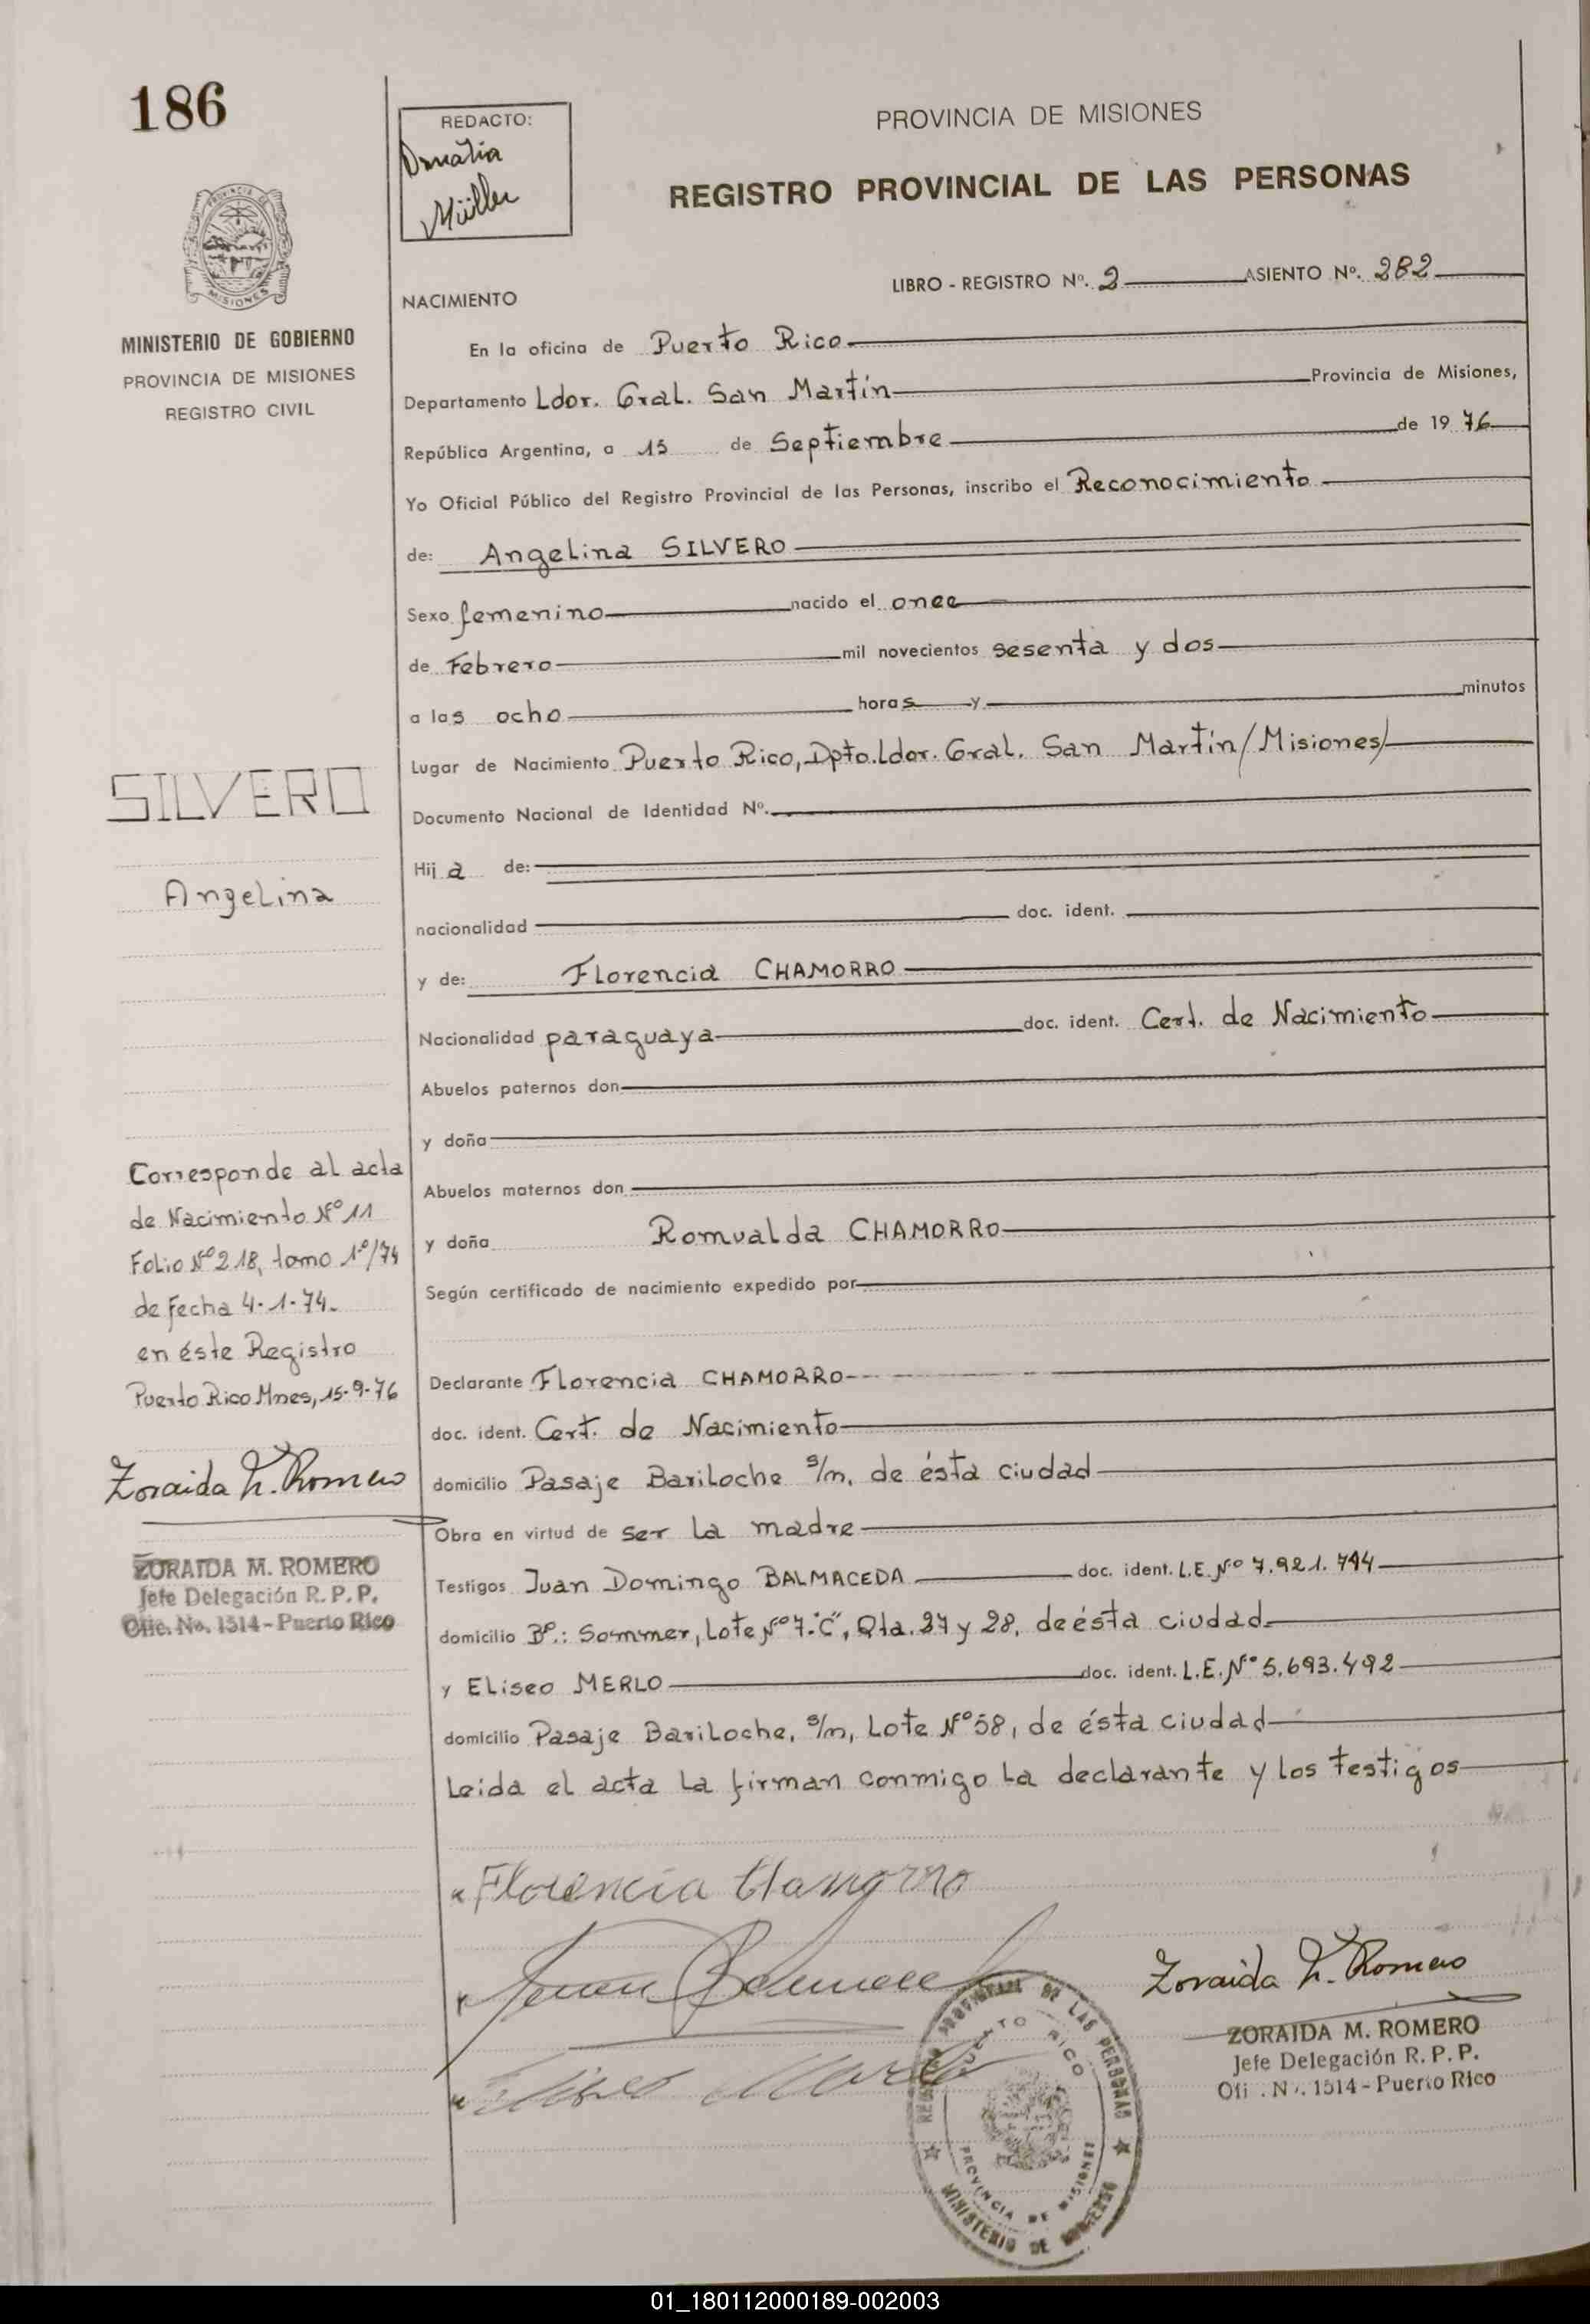 186
REDACTO:
Müller
PROVINCIA DE MISIONES
REGISTRO PROVINCIAL DE LAS PERSONAS
PROVINCIA DE
MISIONES
MINISTERIO DE GOBIERNO
PROVINCIA DE MISIONES
REGISTRO CIVIL
LIBRO - REGISTRO Nº. 2 ASIENTO Nº. 282
NACIMIENTO
En la oficina de Puerto Rico
Departamento Ldor. Gral. San Martín Provincia de Misiones,
República Argentina, a 15 de Septiembre de 19 76
Yo Oficial Público del Registro Provincial de las Personas, inscribo el Reconocimiento
de: Angelina SILVERO
Sexo femenino nacido el once
de Febrero mil novecientos sesenta y dos
a las ocho horas y minutos
Lugar de Nacimiento Puerto Rico, Dpto. Ldor. Gral. San Martín/Misiones/
Documento Nacional de Identidad Nº.
Hija de:
nacionalidad doc. ident.
y de: Florencia CHAMORRO
Nacionalidad paraguaya doc. ident. Cert. de Nacimiento
Abuelos paternos don
y doña
Abuelos maternos don
y doña Romualda CHAMORRO
Según certificado de nacimiento expedido por
Declarante Florencia CHAMORRO
doc. ident. Cert. de Nacimiento
domicilio Pasaje Bariloche s/n, de ésta ciudad
Obra en virtud de ser la madre
Testigos Juan Domingo BALMACEDA doc. ident. L.E. Nº 7.921.744
domicilio Bº.: Sommer, Lote Nº 7."C", Qta. 27 y 28, de ésta ciudad
y Eliseo MERLO doc. ident. L.E. Nº 5.693.492
domicilio Pasaje Bariloche, s/n, Lote Nº 58, de ésta ciudad
Leida el acta la firman conmigo la declarante y los testigos
SILVERO
Angelina
Corresponde al acta
de Nacimiento Nº 11
Folio Nº 218, tomo 1º/74
de fecha 4-1-74.
en éste Registro
Puerto Rico Mnes, 15-9-76
Zoraida M. Romero
ZORAIDA M. ROMERO
Jefe Delegación R. P. P.
Ofic. No. 1514 - Puerto Rico
Florencia Chamorro
Juan Balmaceda
Eliseo Merlo
Zoraida M. Romero
ZORAIDA M. ROMERO
Jefe Delegación R. P. P.
Ofi . N . 1514 - Puerto Rico
REGISTRO PROVINCIAL DE LAS PERSONAS
PUERTO RICO
PROVINCIA DE MISIONES
MINISTERIO DE GOBIERNO
01_180112000189-002003